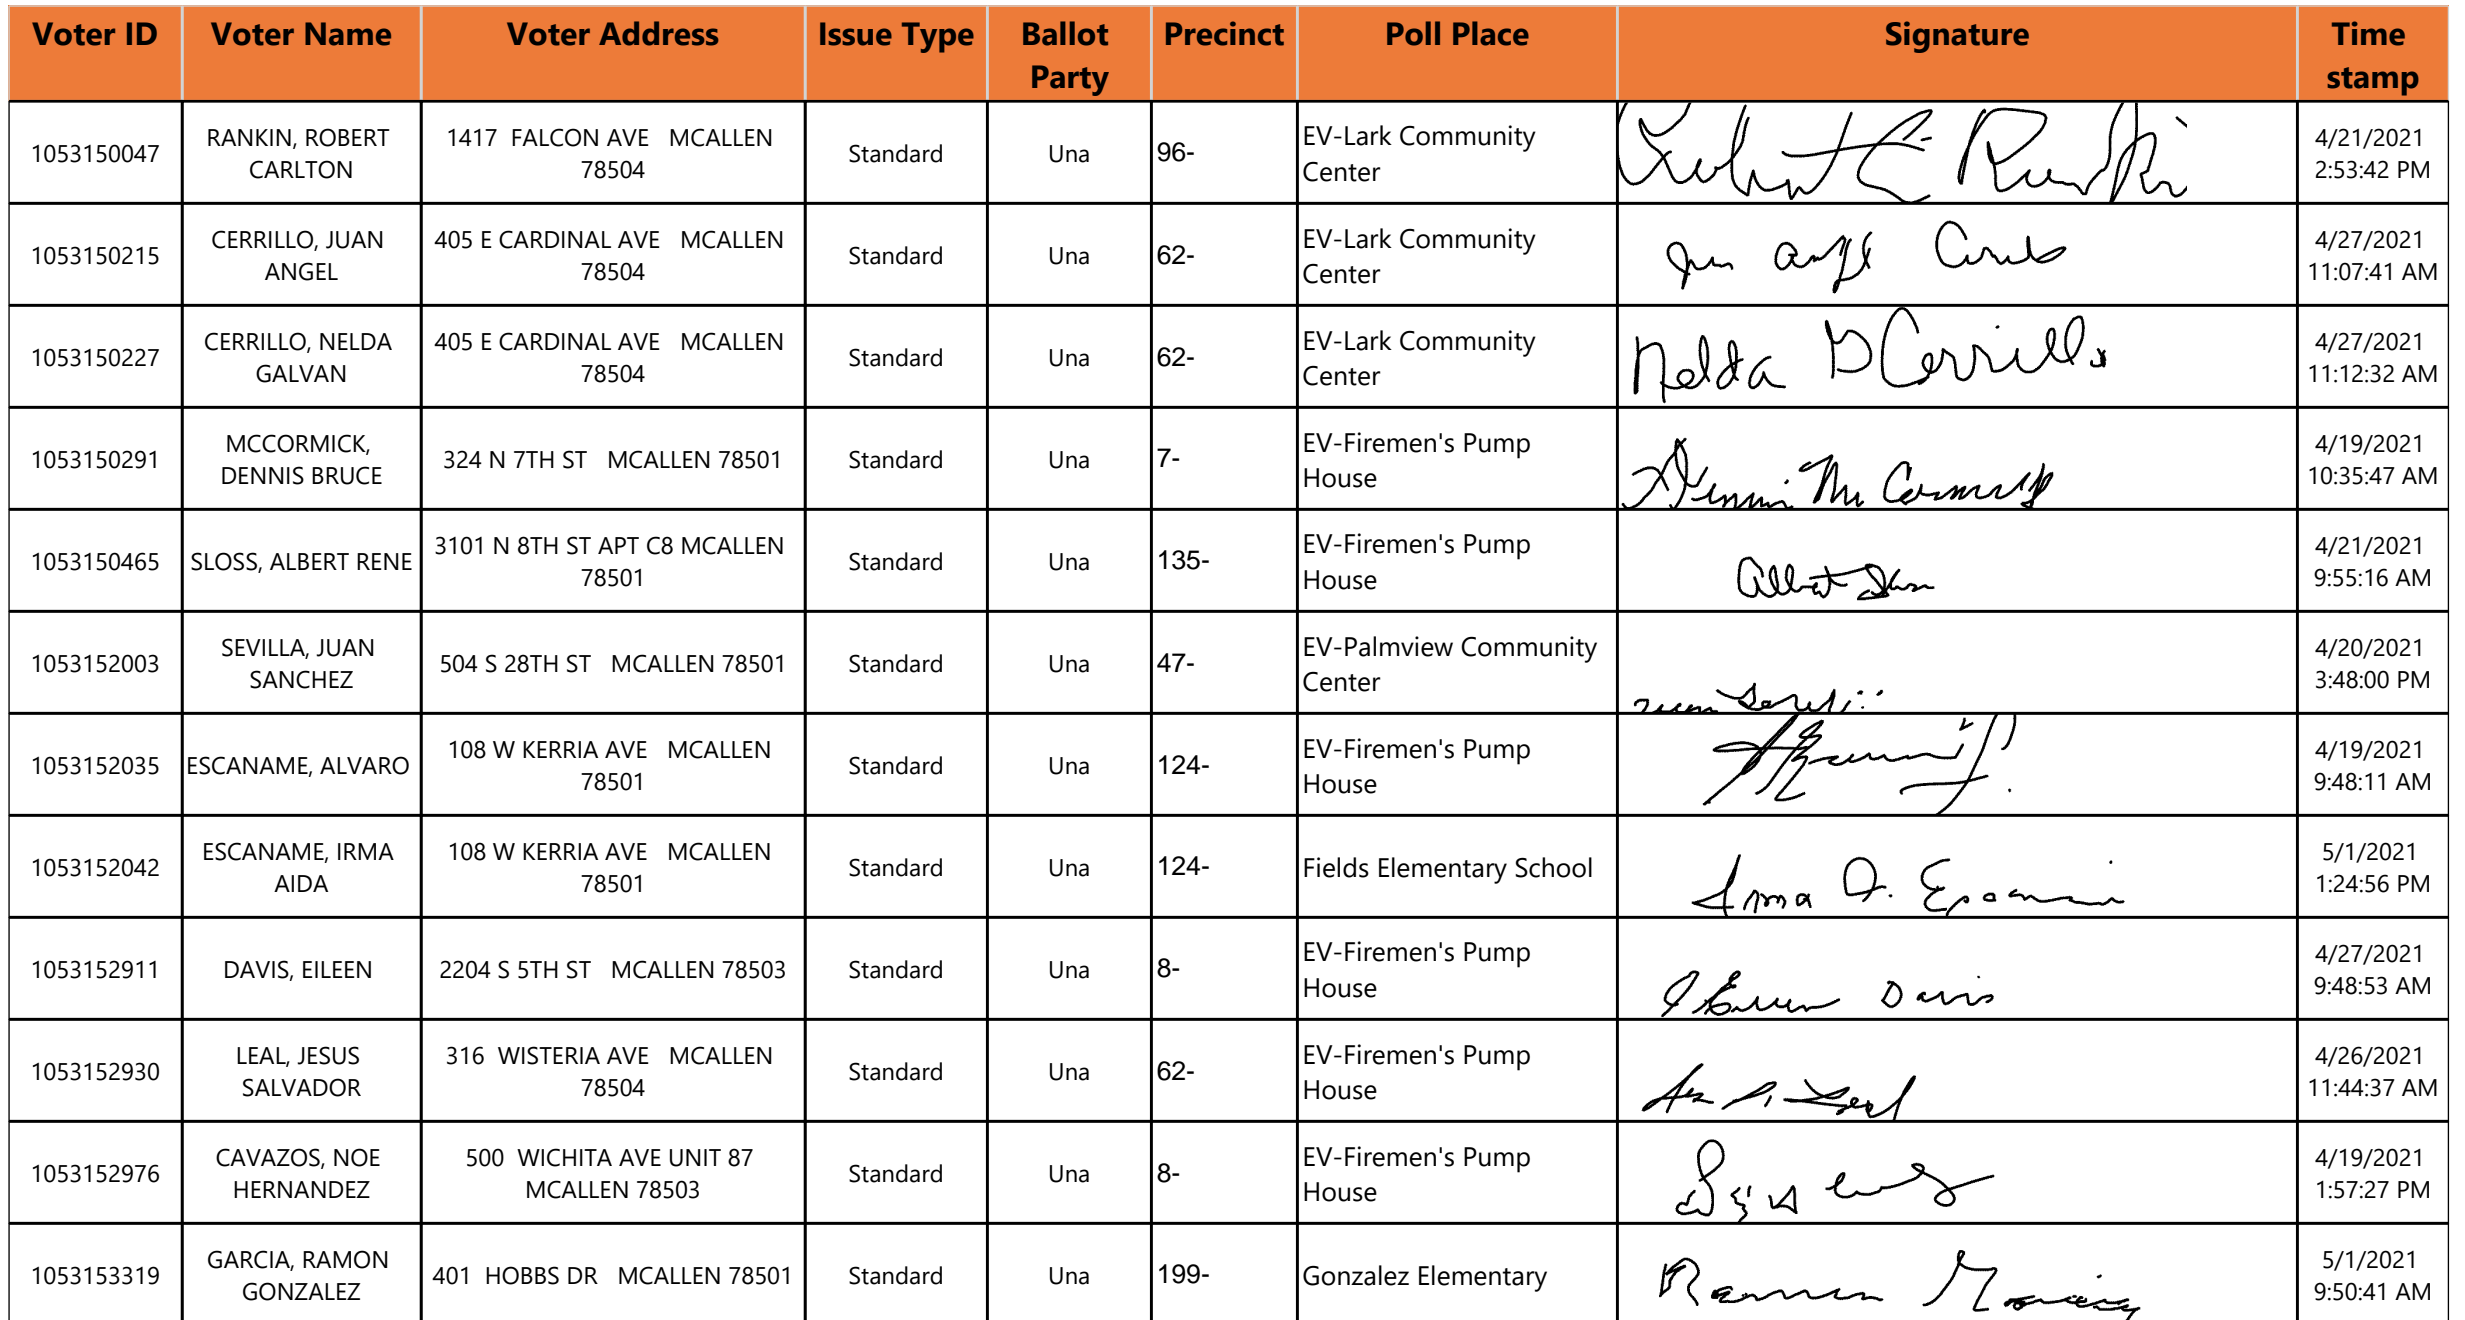 Voter ID Voter Name Voter Address Issue Type Ballot Party Precinct Poll Place Signature Time stamp
1053150047 RANKIN, ROBERT CARLTON 1417 FALCON AVE MCALLEN 78504 Standard Una 96- EV-Lark Community Center Robert C Rankin 4/21/2021 2:53:42 PM
1053150215 CERRILLO, JUAN ANGEL 405 E CARDINAL AVE MCALLEN 78504 Standard Una 62- EV-Lark Community Center 4/27/2021 11:07:41 AM
1053150227 CERRILLO, NELDA GALVAN 405 E CARDINAL AVE MCALLEN 78504 Standard Una 62- EV-Lark Community Center Nelda G Cerrillo 4/27/2021 11:12:32 AM
1053150291 MCCORMICK, DENNIS BRUCE 324 N 7TH ST MCALLEN 78501 Standard Una 7- EV-Firemen's Pump House Dennis McCormick 4/19/2021 10:35:47 AM
1053150465 SLOSS, ALBERT RENE 3101 N 8TH ST APT C8 MCALLEN 78501 Standard Una 135- EV-Firemen's Pump House Albert Sloss 4/21/2021 9:55:16 AM
1053152003 SEVILLA, JUAN SANCHEZ 504 S 28TH ST MCALLEN 78501 Standard Una 47- EV-Palmview Community Center 4/20/2021 3:48:00 PM
1053152035 ESCANAME, ALVARO 108 W KERRIA AVE MCALLEN 78501 Standard Una 124- EV-Firemen's Pump House 4/19/2021 9:48:11 AM
1053152042 ESCANAME, IRMA AIDA 108 W KERRIA AVE MCALLEN 78501 Standard Una 124- Fields Elementary School Irma A. 5/1/2021 1:24:56 PM
1053152911 DAVIS, EILEEN 2204 S 5TH ST MCALLEN 78503 Standard Una 8- EV-Firemen's Pump House Eileen Davis 4/27/2021 9:48:53 AM
1053152930 LEAL, JESUS SALVADOR 316 WISTERIA AVE MCALLEN 78504 Standard Una 62- EV-Firemen's Pump House Leal 4/26/2021 11:44:37 AM
1053152976 CAVAZOS, NOE HERNANDEZ 500 WICHITA AVE UNIT 87 MCALLEN 78503 Standard Una 8- EV-Firemen's Pump House 4/19/2021 1:57:27 PM
1053153319 GARCIA, RAMON GONZALEZ 401 HOBBS DR MCALLEN 78501 Standard Una 199- Gonzalez Elementary Ramon 5/1/2021 9:50:41 AM